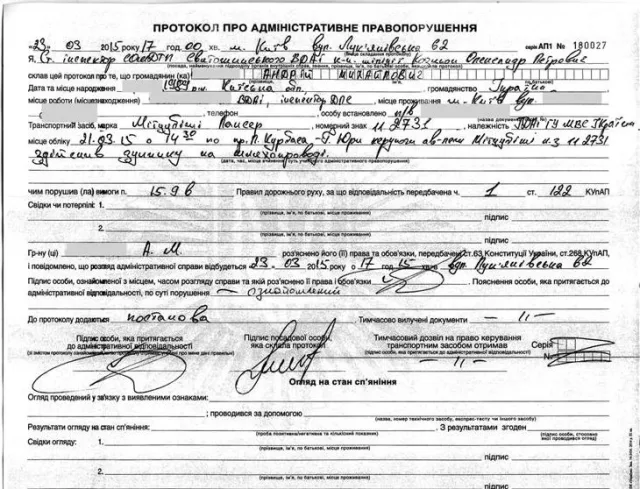 ПРОТОКОЛ ПРО АДМІНІСТРАТИВНЕ ПРАВОПОРУШЕННЯ
23. 03 2015 року 17 год. 00 хв. м. Київ вул. Лук'янівська 62 серія АП1 № 180027
Я, Ст. інспектор Святошинського ВДАІ к-н міліції Олександр Петрович
склав цей протокол про те, що громадянин (ка) АНДРІЙ МИХАЙЛОВИЧ
Дата та місце народження Київська обл. громадянство Україна
місце роботи (місцезнаходження) ВДАІ, інспектор ДПС місце проживання м. Київ вул.
, телефон особу встановлено п/в
Транспортний засіб, марка Міцубіші Лансер номерний знак 11 2731, належність ГУ МВС України
місце обліку 21.03.15 о 14 30 по пр. Л. Курбаса - Г. Юри керуючи ав-лем Міцубіші н.з 11 2731
здійснив зупинку на пішохопроводі.
(дата, час, місце вчинення, суть адміністративного правопорушення)
чим порушив (ла) вимоги п. 15.9 в Правил дорожнього руху, за що відповідальність передбачена ч. 1 ст. 122 КУпАП
Свідки чи потерпілі: 1.
(прізвище, ім'я, по батькові, місце проживання) підпис
2.
(прізвище, ім'я, по батькові, місце проживання) підпис
Гр-ну (ці) А. М. роз'яснено його (її) права та обов'язки, передбачені ст.63 Конституції України, ст.268 КУпАП,
і повідомлено, що розгляд адміністративної справи відбудеться 23 - 03 2015 року о 17 год 15 хвил вул Лук'янівська 62
Підпис особи, ознайомленої з місцем, часом розгляду справи та якій роз'яснені її права і обов'язки Пояснення особи, яка притягується до
адміністративної відповідальності, по суті порушення - ознайомлений
До протоколу додаються постанова Тимчасово вилучені документи — 11 —
Підпис особи, яка притягається до адміністративної відповідальності
Підпис посадової особи, яка склала протокол
Тимчасовий дозвіл на право керування транспортним засобом отримав
Серія
№
Огляд на стан сп'яніння
Огляд проведений у зв'язку з виявленими ознаками:
; проводився за допомогою
(назва, номер технічного засобу, експрес-тесту чи іншого засобу)
Результати огляду на стан сп'яніння: . З результатами згоден
(проба позитивна/негативна та кількісний показник) (підпис особи, стосовно якої проводився огляд)
Свідки огляду: 1.
(прізвище, ім'я, по батькові, місце проживання) підпис
2.
(прізвище, ім'я, по батькові, місце проживання) підпис